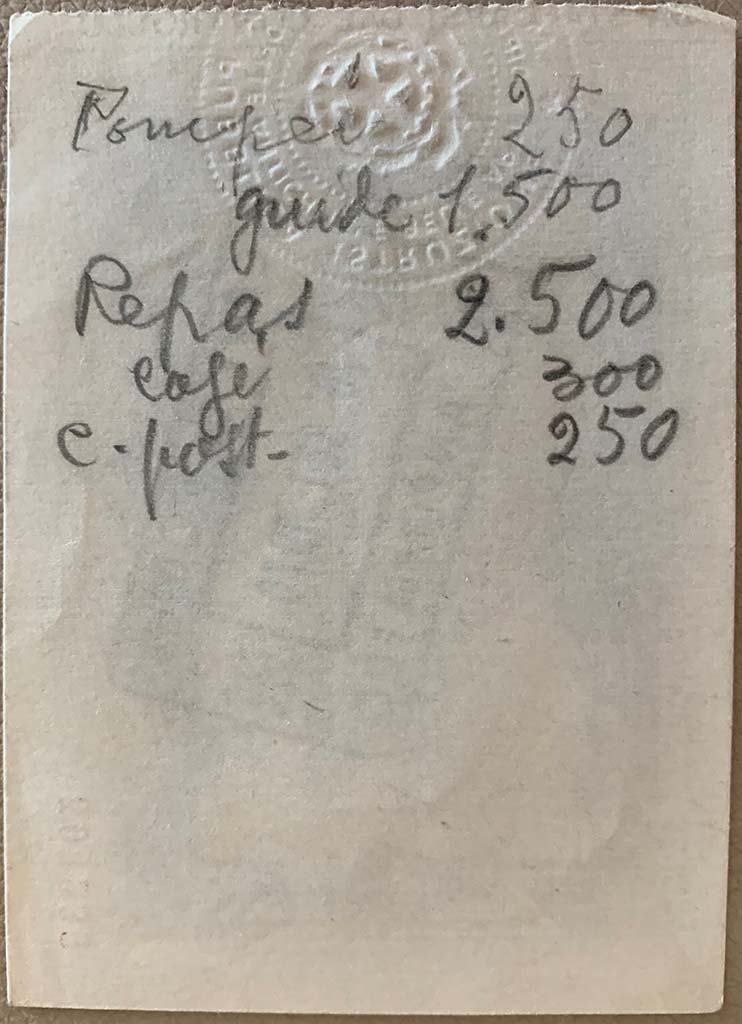 Pompei 250
guide 1.500
Repas 2.500
café 300
c-post- 250